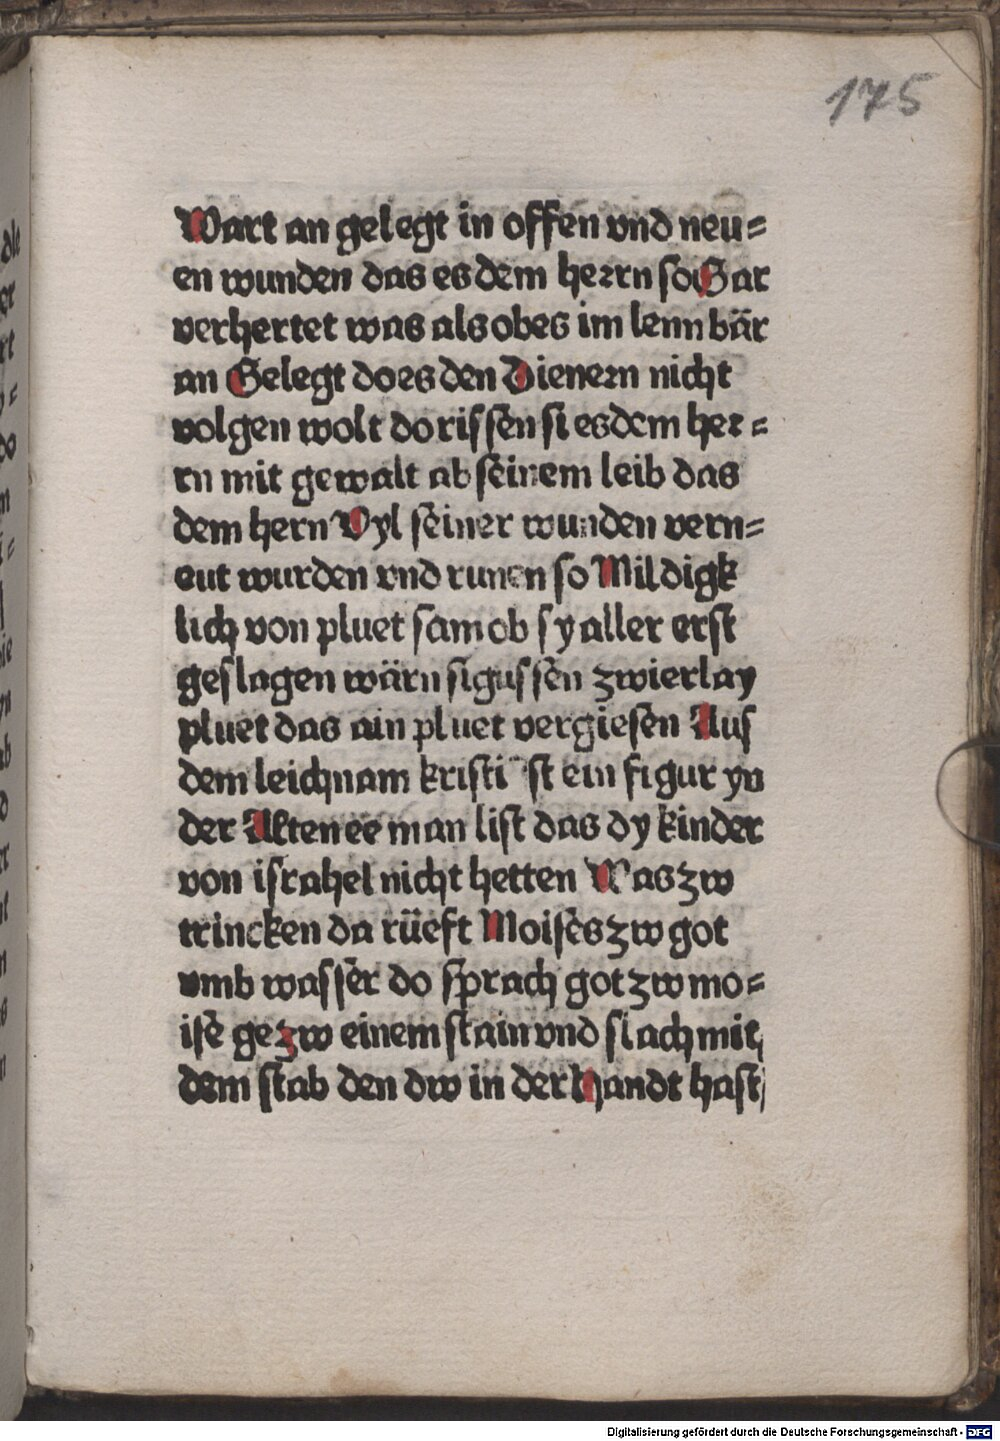 175
Wart an gelegt in offen vnd neu=
en wunden das es dem herrn so Gar
verhertet was als ob es im lenn bär
an Gelegt do es den Dienern nicht
volgen wolt do rissen si es dem her=
rn mit gewalt ab seinem leib das
dem hern Vyl seiner wunden vern=
eut wurden vnd runen so Mildigk
lich von pluet sam ob sy aller erst
geslagen wärn si gussen zwierlay
pluet das ain pluet vergiesen Aus
dem leichnam kristi ist ein figur yn
der Alten ee man list das dy kinder
von israhel nicht hetten Was zw
trincken da rüeft Moises zw got
vmb wasser do sprach got zw mo=
ise ge zw einem stain vnd slach mit
dem stab den dw in der Handt hast
Digitalisierung gefördert durch die Deutsche Forschungsgemeinschaft - DFG